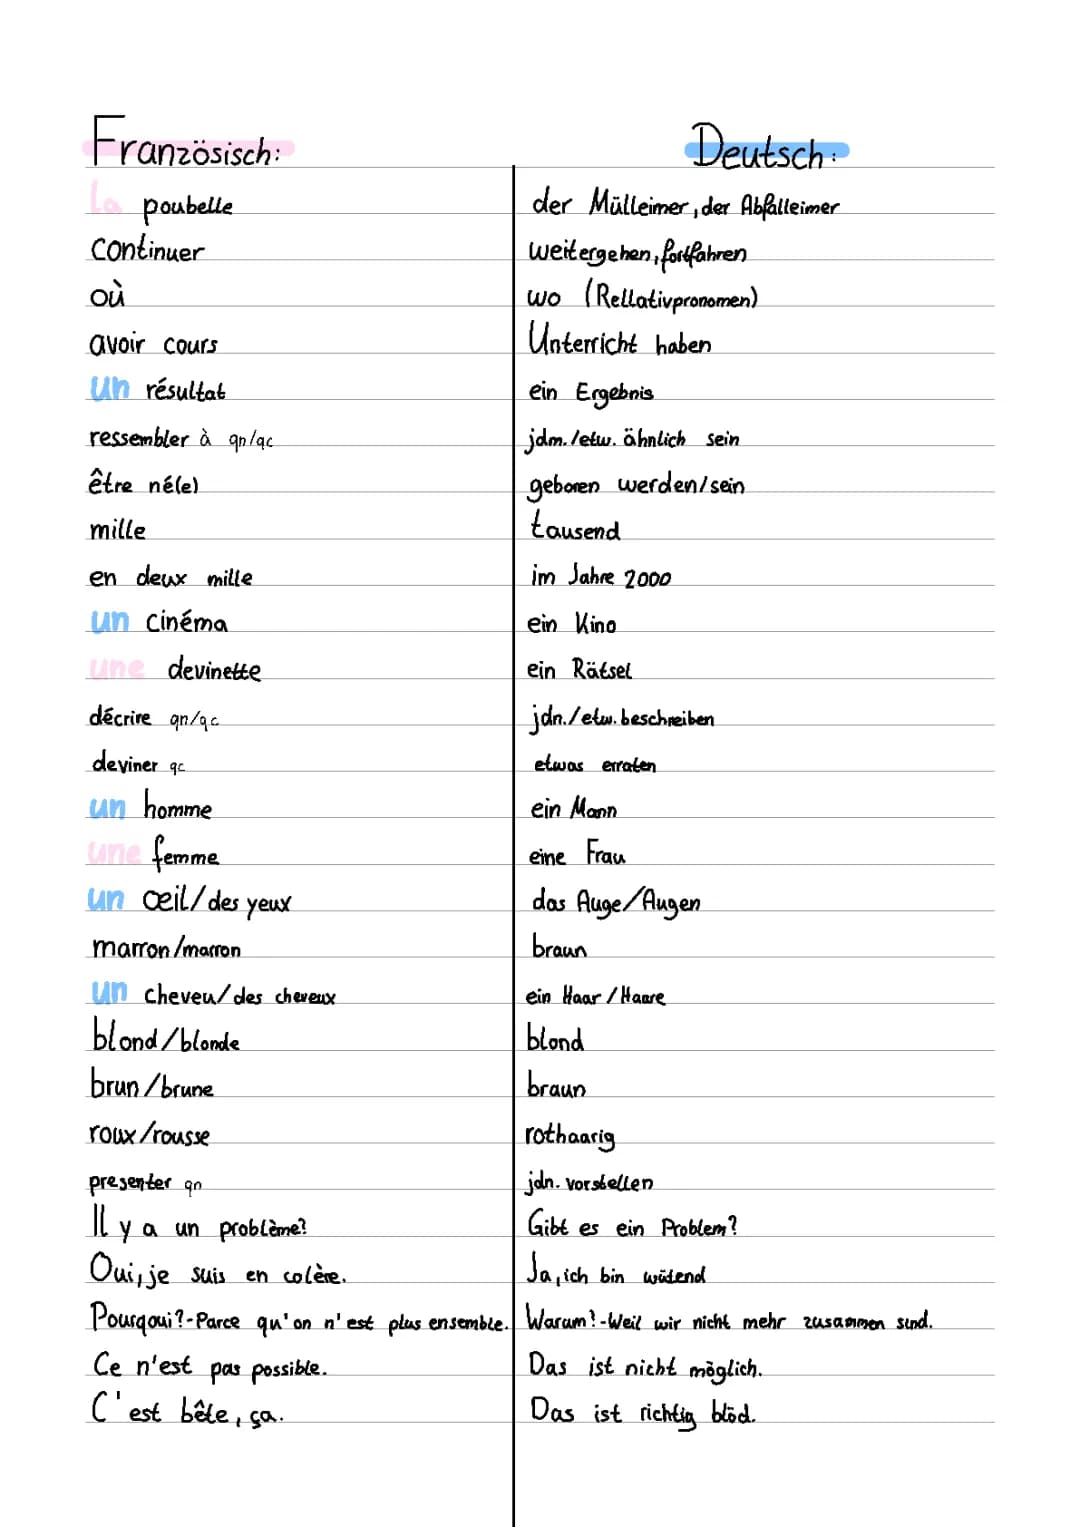 Französisch: Deutsch:
la poubelle der Mülleimer, der Abfalleimer
continuer weitergehen, fortfahren
où wo (Rellativpronomen)
avoir cours Unterricht haben
un résultat ein Ergebnis
ressembler à qn/qc jdm./etw. ähnlich sein
être né(e) geboren werden/sein
mille tausend
en deux mille im Jahre 2000
un cinéma ein Kino
une devinette ein Rätsel
décrire qn/qc jdn./etw. beschreiben
deviner qc etwas erraten
un homme ein Mann
une femme eine Frau
un œil/des yeux das Auge/Augen
marron/marron braun
un cheveu/des cheveux ein Haar/Haare
blond/blonde blond
brun/brune braun
roux/rousse rothaarig
presenter qn jdn. vorstellen
Il y a un problème? Gibt es ein Problem?
Oui, je suis en colère. Ja, ich bin wütend
Pourqoui?-Parce qu'on n'est plus ensemble. Warum?-Weil wir nicht mehr zusammen sind.
Ce n'est pas possible. Das ist nicht möglich.
C'est bête, ça. Das ist richtig blöd.